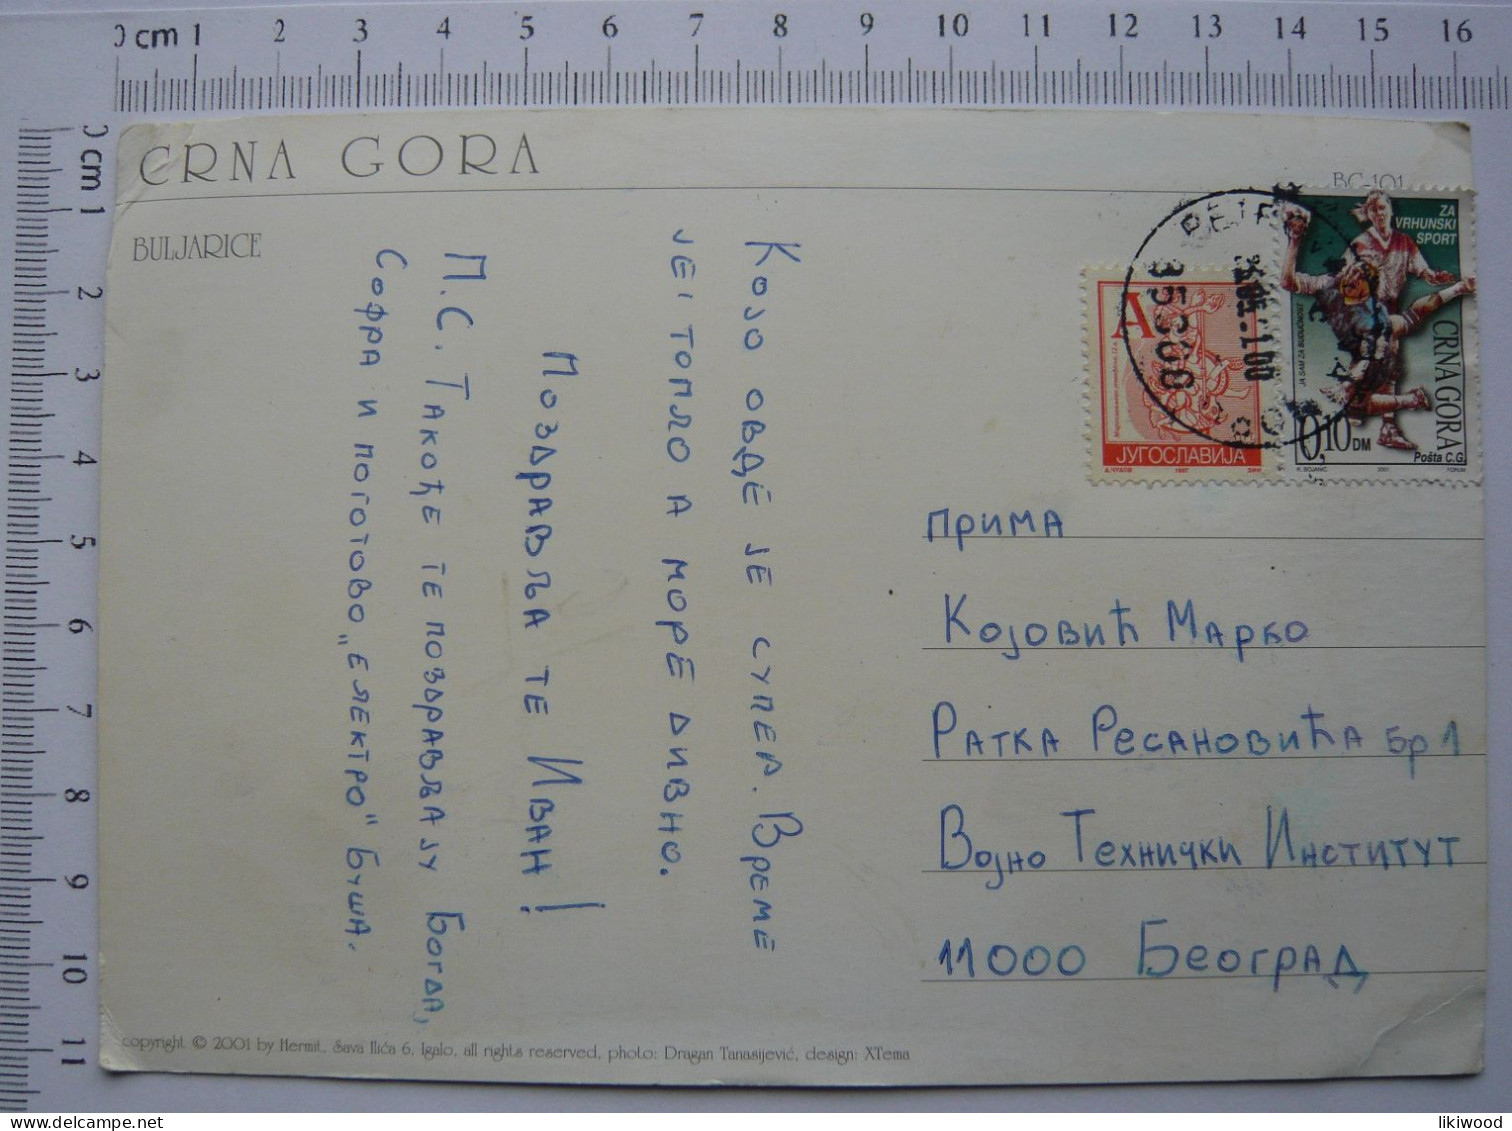 0 cm 1 2 3 4 5 6 7 8 9 10 11 12 13 14 15 16
0 cm 1 2 3 4 5 6 7 8 9 10 11
CRNA GORA
BC-101
BULJARICE
Којо овде је супер. Време
је топло а море дивно.
Поздравља те Иван!
П.С. Такође те поздрављају Богда,
Софра и поготово „Електро" Буша.
ZA
VRHUNSKI
SPORT
JA SAM ZA BUDUĆNOST
CRNA GORA
0,10 DM
Pošta C.G.
2001
А
ЈУГОСЛАВИЈА
1997
85308
прима
Којовић Марко
Ратка Ресановића бр 1
Војно Технички Институт
11000 Београд
copyright © 2001 by Hermit, Sava Ilića 6, Igalo, all rights reserved, photo: Dragan Tanasijević, design: XTema
likiwood